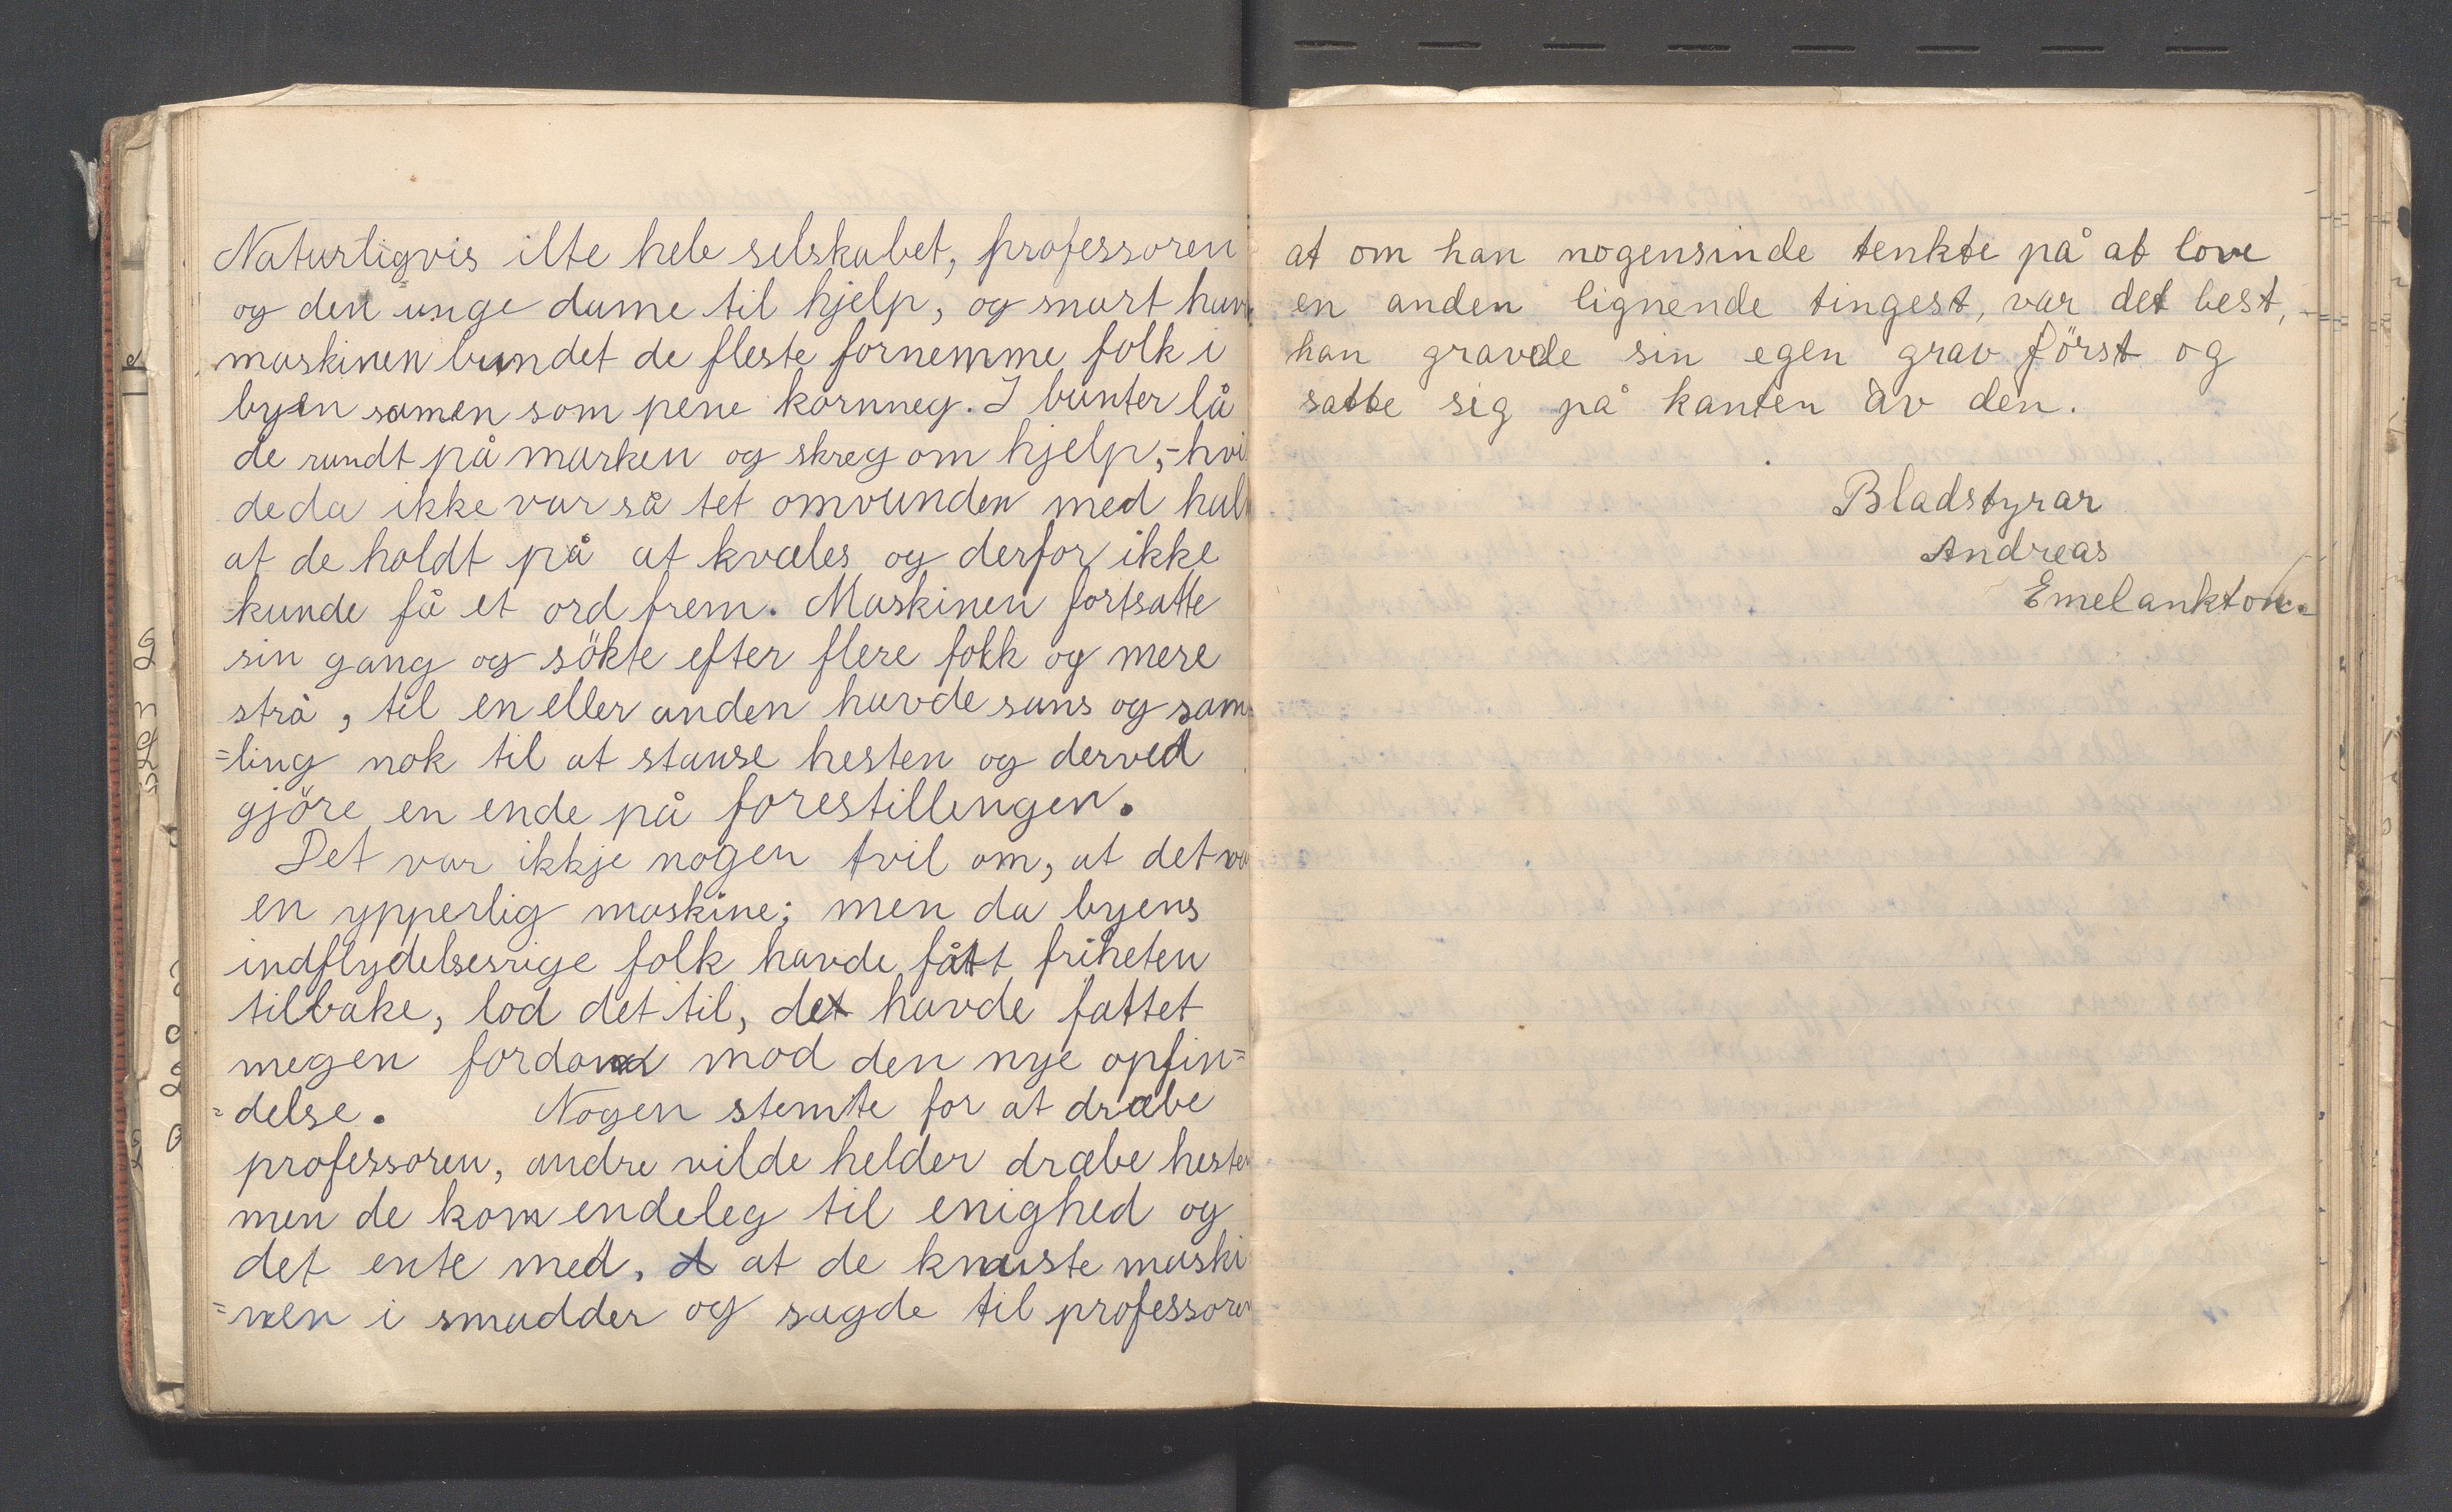 Naturligvis ilte hele selskabet, professoren
og den unge dame til hjelp, og snart hav
maskinen bundet de fleste fornemme folk i
byen samen som pene kornneg. I bunter lå
de rundt på marken og skreg om hjelp, - hvi
de da ikke var så tet omvunden med hal
at de holdt på at kvæles og derfor ikke
kunde få et ord frem. Maskinen fortsatte
sin gang og sökte efter flere folk og mere
strå, til en eller anden havde sans og sam
=ling nok til at stanse hesten og derved
gjöre en ende på forestillingen.
Det var ikkje nogen tvil om, at det va
en ypperlig maskine; men da byens
indflydelsesrige folk havde fått friheten
tilbake, lod det til, det havde fattet
megen fordom mod den nye opfin=
=delse. Nogen stemte for at dræbe
professoren, andre vilde helder dræbe hesten
men de kom endeleg til enighed og
det ente med, at de knuste maski
=nen i smadder og sagde til professoren
at om han nogensinde tenkte på at love
en anden lignende tingest, var det best,
han gravde sin egen grav först og
satte sig på kanten av den.
Bladstyrar
Andreas
Emelankton.